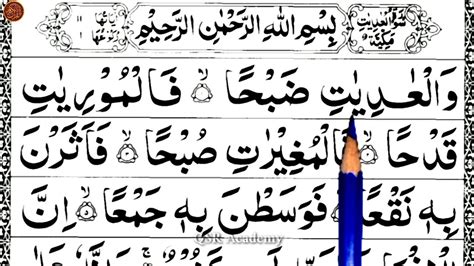 سُوْرَةُ الْعٰدِيٰتِ مَكِّيَّةٌ
بِسْمِ اللّٰهِ الرَّحْمٰنِ الرَّحِيْمِ
وَالْعٰدِيٰتِ ضَبْحًا ۙ﴿۱﴾ فَالْمُوْرِيٰتِ
قَدْحًا ۙ﴿۲﴾ فَالْمُغِيْرٰتِ صُبْحًا ۙ﴿۳﴾ فَاَثَرْنَ
بِهٖ نَقْعًا ۙ﴿۴﴾ فَوَسَطْنَ بِهٖ جَمْعًا ۙ﴿۵﴾ اِنَّ
QSR Academy